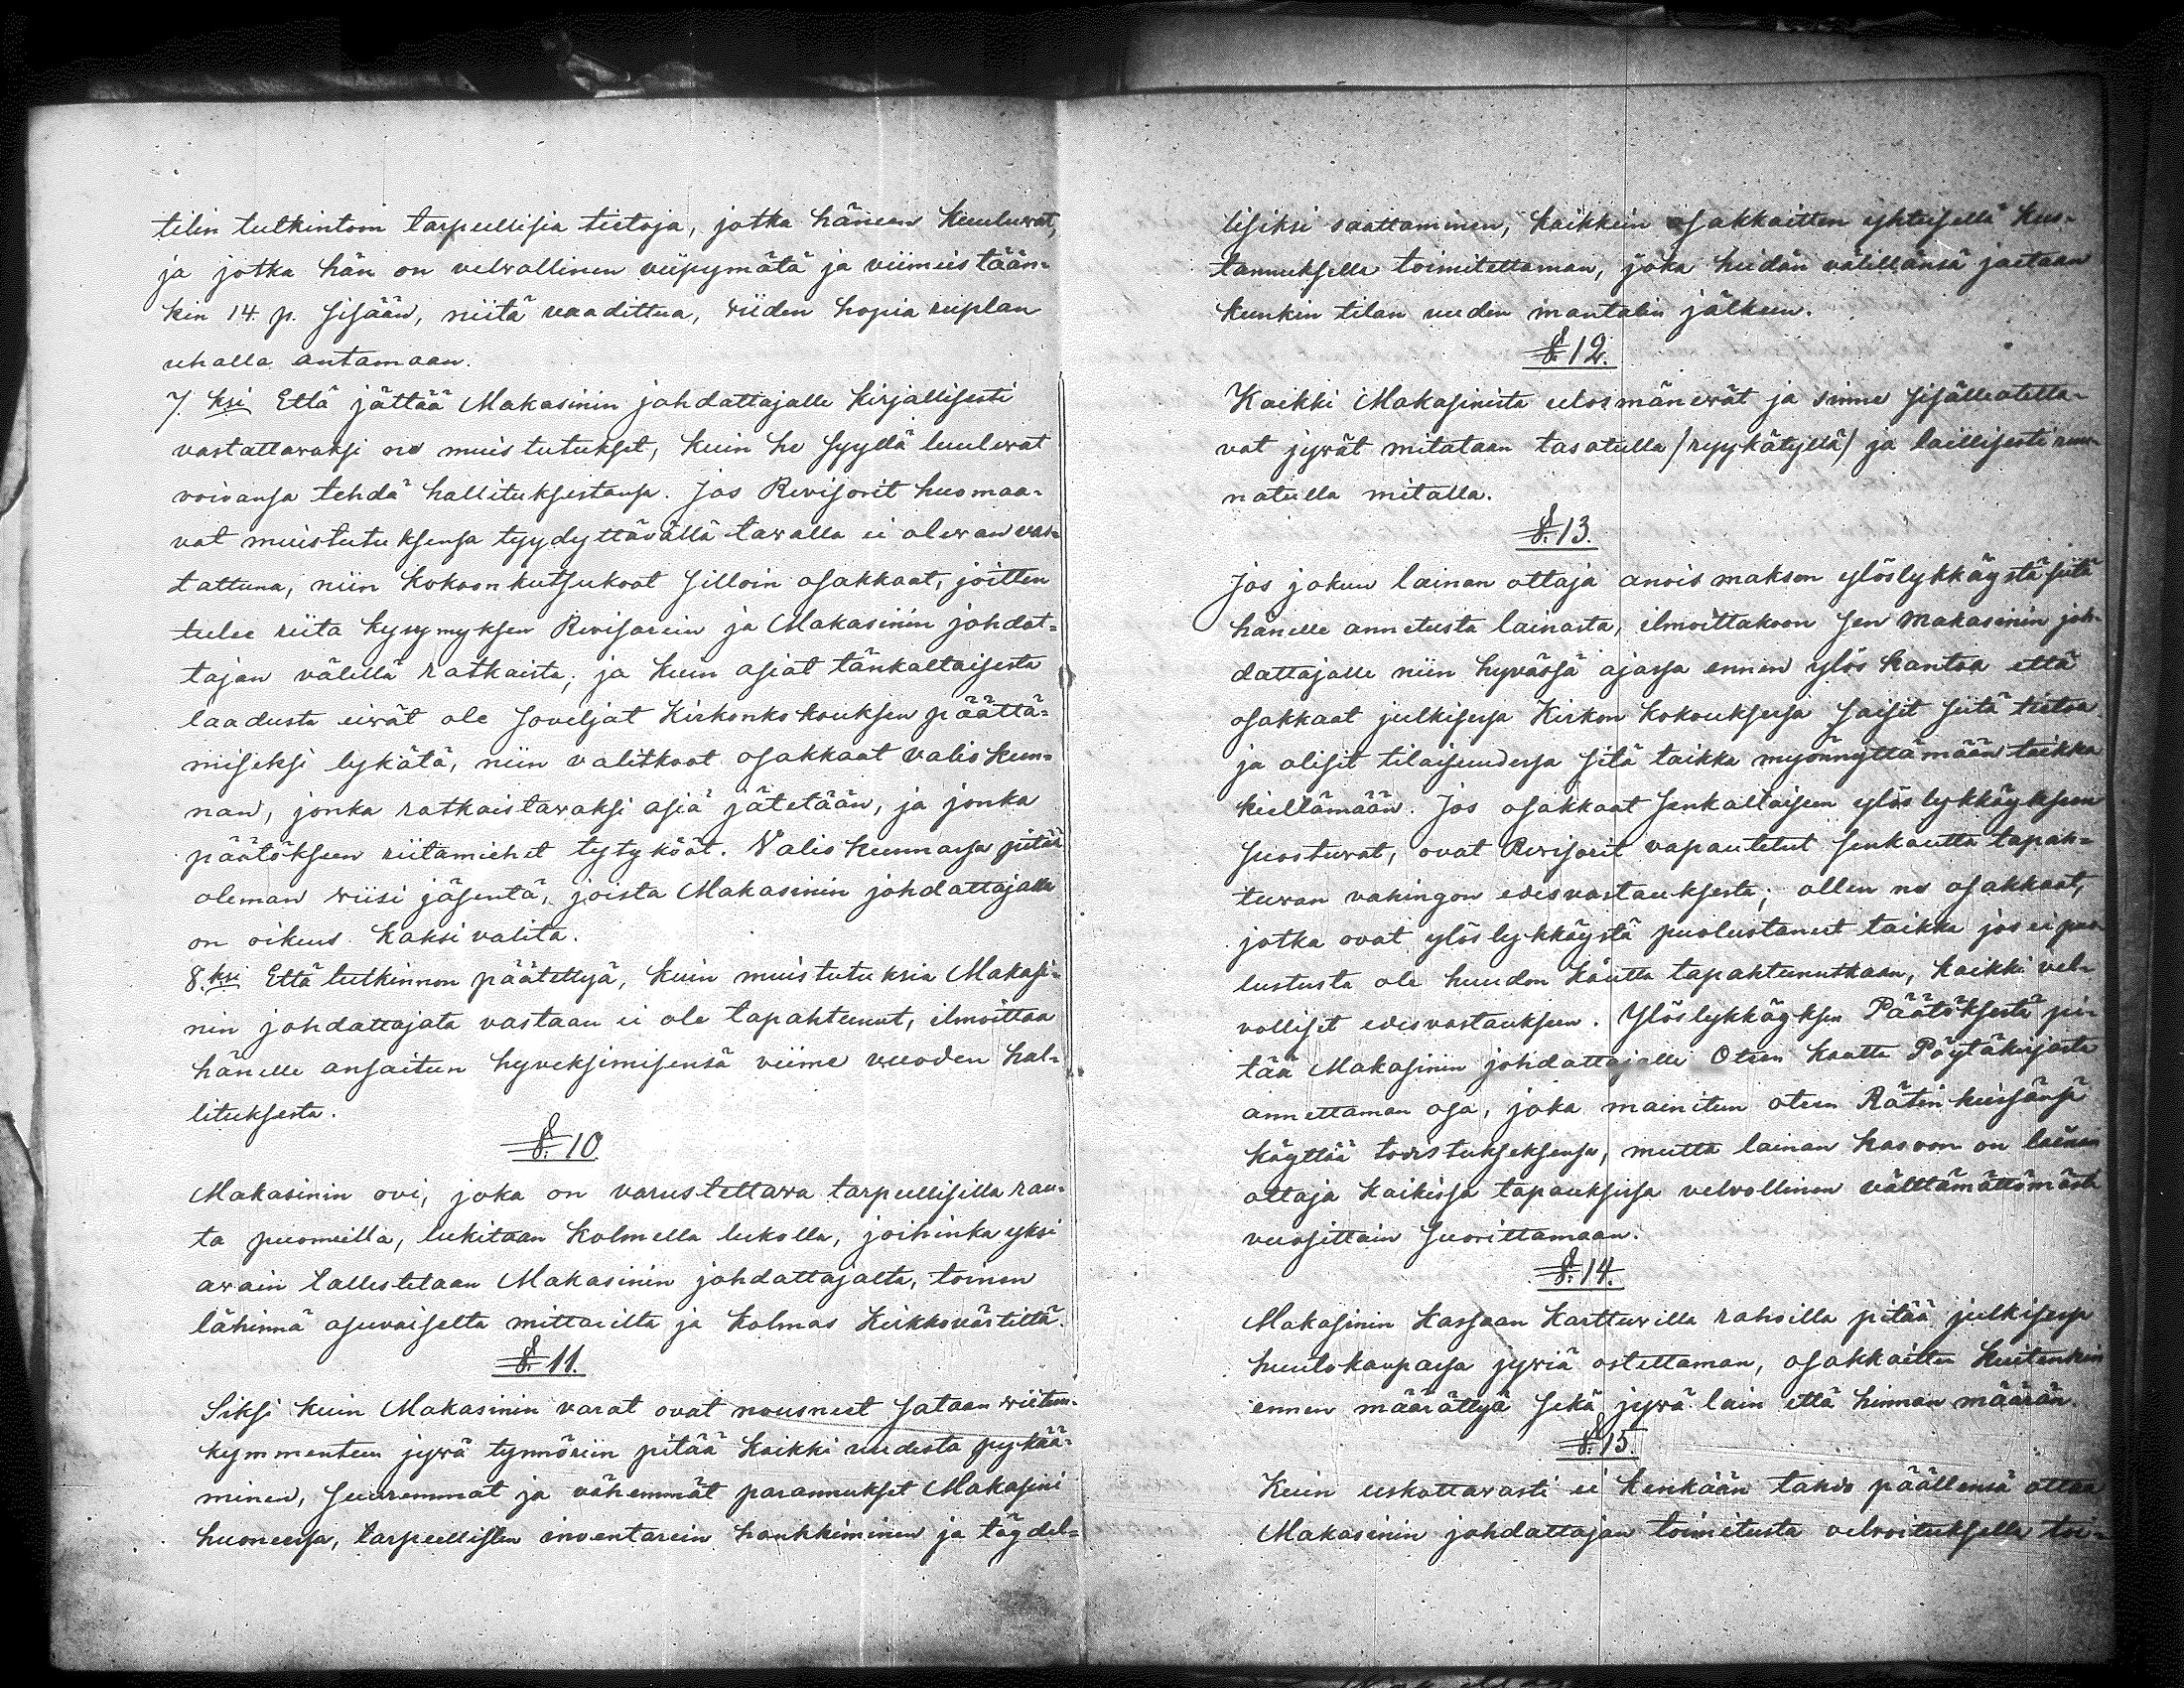 tilin tutkintoon tarpeellisia tietoja, jotka häneen kuuluwat,
ja jotka hän on velvollinen viipymätä ja viimeistään-
kin 14 p. sisään, niitä vaadittua, viiden hopia ruplan
uhalla antamaan.
7 ksi Että jättää Makasinin johdattajalle kirjallisesti
vastattavaksi ne muistutukset, kuin he syyllä luulevat
voivansa tehdä hallituksestansa. Jos Revisorit huomaa-
vat muistutuksensa tyydyttävällä tavalla ei olevan vas-
tattuna, niin kokoonkutsukoot silloin osakkaat, joitten
tulee riita kysymyksen Revisorein ja Makasinin johdat-
tajan välillä ratkaista; ja kuin asiat tänkaltaisesta
laadusta eivät ole soveljat Kirkonkokouksen päättä-
miseksi lykätä, niin valitkoot osakkaat valiokun-
nan, jonka ratkaistavaksi asia jätetään, ja jonka
päätökseen riitamiehet tytykööt. Valiokunnassa pitää
oleman viisi jäsentä, joista Makasinin johdattajalla
on oikeus kaksi valita.
8 ksi Että tutkinnon päätettyä, kuin muistutuksia Makasi-
nin johdattajata vastaan ei ole tapahtunut, ilmoittaa
hänelle ansaitun hyveksimisensä viime vuoden hal-
lituksesta.
§. 10
Makasinin ovi, joka on varustettava tarpeellisilla rau-
ta puomilla, lukitaan kolmella lukolla, joihinka yksi
avain talletetaan Makasinin johdattajalta, toinen
lähinnä asuvaiselta mittarilta ja kolmas Kirkkovärtiltä.
§. 11.
Siksi kuin Makasinin varat ovat nousneet sataan viiten-
kymmenteen jyvä tynnöriin pitää kaikki uudesta pykää-
minen, suuremmat ja vähemmät parannukset Makasini
huoneessa, tarpeellisten inventarein hankkiminen ja täydel-
lisiksi saattaminen, kaikkein osakkaitten yhteisellä kus-
tannuksella toimitettaman, joka heidän välillänsä jaetaan
kunkin tilan uuden mantalin jälkeen.
§. 12.
Kaikki Makasinista ulosmänevät ja sinne sisälleotetta-
vat jyvät mitataan tasatulla /ryykätyllä/ ja laillisesti ruu-
natulla mitalla.
§. 13.
Jos jokuu lainan ottaja anois makson ylöslykkäystä siitä
hänelle annetusta lainasta, ilmoittakoon sen makasinin joh-
dattajalle niin hyvässä ajassa ennen ylös kantoa että
osakkaat julkisessa Kirkon kokouksessa saisit siitä tietoa
ja olisit tilaisuudessa sitä taikka myönnyttämään taikka
kieltämään. Jos osakkaat senkaltaiseen ylöslykkäykseen
suostuvat, ovat Revisorit vapautetut senkautta tapah-
tuvan vahingon edesvastauksesta; ollen ne osakkaat,
jotka ovat ylöslykkäystä puolustaneet taikka jos ei puo-
lustusta ole huudon kautta tapahtunutkaan, kaikki vel-
volliset edesvastaukseen. Ylöslykkäyksen Päätöksestä pi-
tää Makasinin johdattajalle Oteen kautta Pöytäkirjasta
annettaman osa, joka mainitun oteen Rätinkiissänsä
käyttää todistukseksensa, mutta lainan kasvon on lainan
ottaja kaikissa tapauksissa velvollinen välttämättömästi
vuosittain suorittamaan.
§. 14.
Makasinin kassaan karttuvilla rahoilla pitää julkisessa
huutokaupassa jyviä ostettaman, osakkaitten kuitenkin
ennen määrättyä sekä jyvä lain että hinnan määrän.
§. 15.
Kuin uskottavasti ei kenkään tahdo päällensä ottaa
Makasinin johdattajan toimitusta velvoituksella toi-